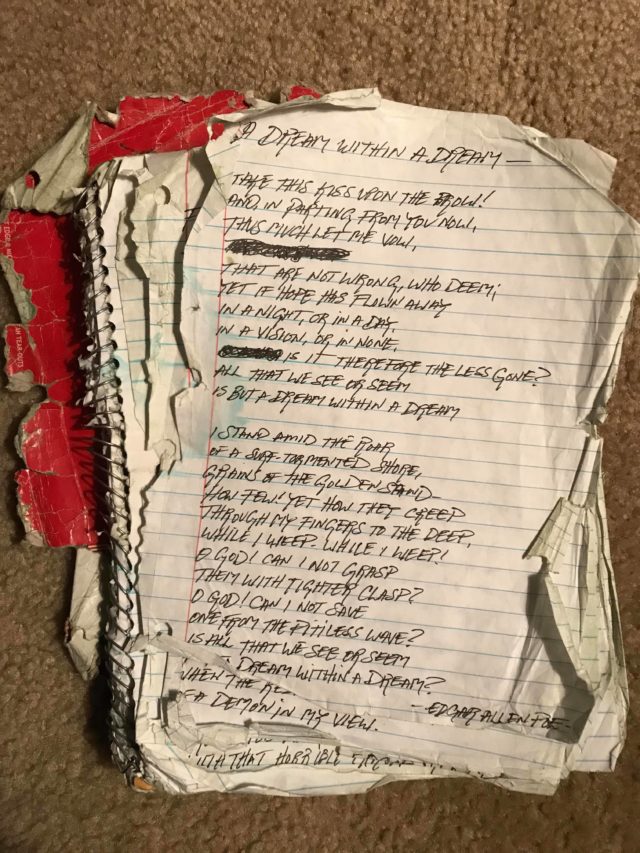 A DREAM WITHIN A DREAM —
TAKE THIS KISS UPON THE BROW!
AND, IN PARTING FROM YOU NOW,
THUS MUCH LET ME VOW,
THAT ARE NOT WRONG, WHO DEEM;
YET IF HOPE HAS FLOWN AWAY
IN A NIGHT, OR IN A DAY,
IN A VISION, OR IN NONE,
IS IT THEREFORE THE LESS GONE?
ALL THAT WE SEE OR SEEM
IS BUT A DREAM WITHIN A DREAM
I STAND AMID THE ROAR
OF A SURF-TORMENTED SHORE,
GRAINS OF THE GOLDEN SAND—
HOW FEW! YET HOW THEY CREEP
THROUGH MY FINGERS TO THE DEEP,
WHILE I WEEP- WHILE I WEEP!
O GOD! CAN I NOT GRASP
THEM WITH TIGHTER CLASP?
O GOD! CAN I NOT SAVE
ONE FROM THE PITILESS WAVE?
IS ALL THAT WE SEE OR SEEM
DREAM WITHIN A DREAM?
WHEN THE
-EDGAR ALLEN POE-
A DEMON IN MY VIEW.
THAT HORRIBLE